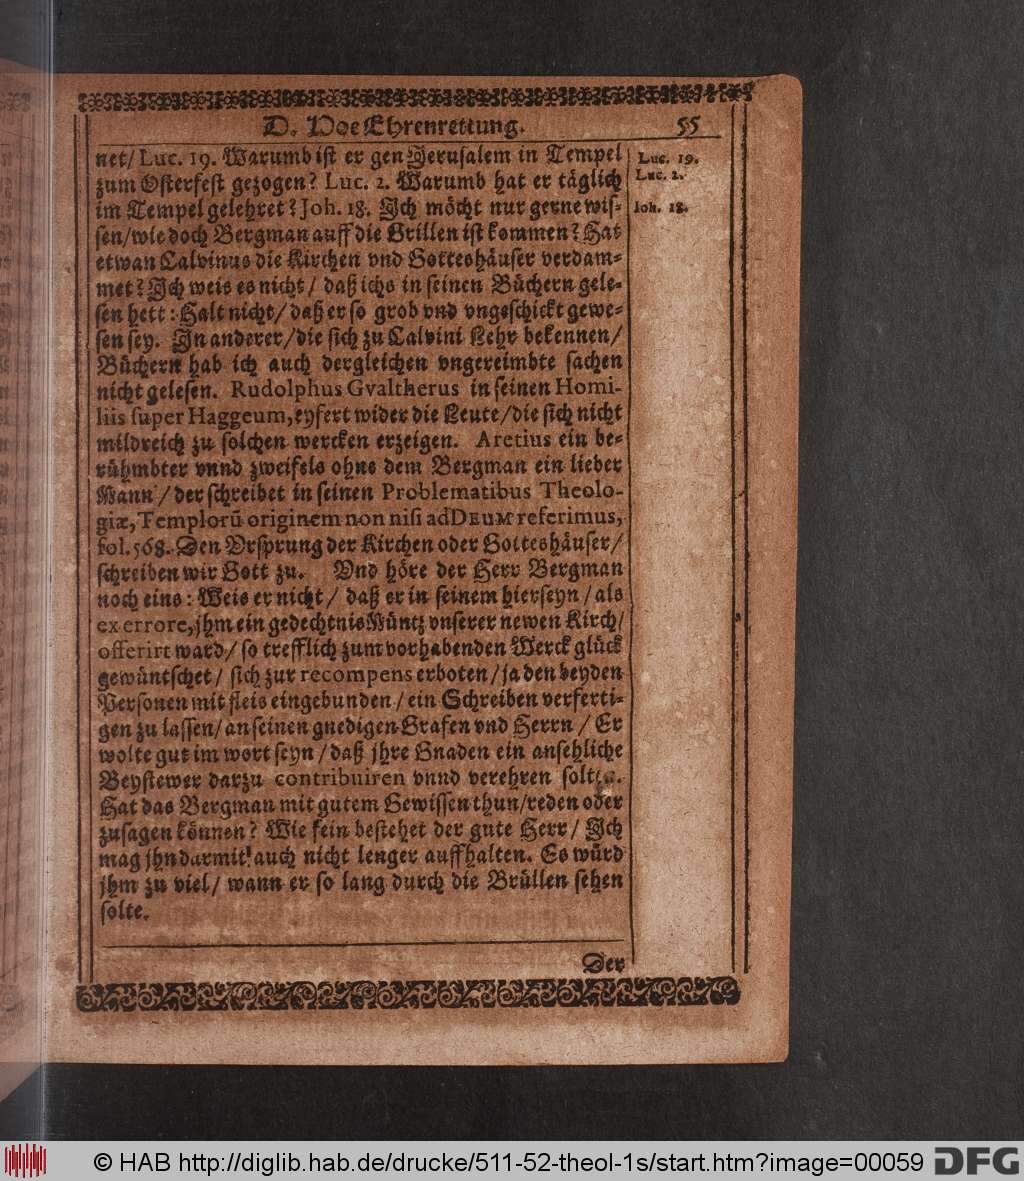 D. Hoe Ehrenrettung. 55
net/ Luc. 19. Warumb ist er gen Jerusalem in Tempel
zum Osterfest gezogen? Luc. 2. Warumb hat er täglich
im Tempel gelehret? Joh. 18. Ich möcht nur gerne wis-
sen/ wie doch Bergman auff die Grillen ist kommen? Hat
etwan Calvinus die Kirchen vnd Gotteshäuser verdam-
met? Ich weis es nicht/ daß ichs in seinen Büchern gele-
sen hett: Halt nicht/ daß er so grob vnd vngeschickt gewe-
sen sey. In anderer/ die sich zu Calvini Lehr bekennen/
Büchern hab ich auch dergleichen vngereimbte sachen
nicht gelesen. Rudolphus Gvaltherus in seinen Homi-
liis super Haggeum, eyfert wider die Leute/ die sich nicht
mildreich zu solchen wercken erzeigen. Aretius ein be-
rühmbter vnnd zweifels ohne dem Bergman ein lieber
Mann/ der schreibet in seinen Problematibus Theolo-
giæ, Templorū originem non nisi ad DEUM referimus,
fol. 568. Den Vrsprung der Kirchen oder Gotteshäuser/
schreiben wir Gott zu. Vnd höre der Herr Bergman
noch eins: Weis er nicht/ daß er in seinem hierseyn/ als
ex errore, jhm ein gedechtnis Müntz vnserer newen Kirch/
offerirt ward/ so trefflich zum vorhabenden Werck glück
gewüntschet/ sich zur recompens erboten/ ja den beyden
Personen mit fleis eingebunden/ ein Schreiben verferti-
gen zu lassen/ an seinen gnedigen Grafen vnd Herrn/ Er
wolte gut im wort seyn/ daß jhre Gnaden ein ansehliche
Beystewer darzu contribuiren vnnd verehren solten.
Hat das Bergman mit gutem Gewissen thun/ reden oder
zusagen können? Wie fein bestehet der gute Herr/ Ich
mag jhn darmit auch nicht lenger auffhalten. Es würd
jhm zu viel/ wann er so lang durch die Brüllen sehen
solte.
Der
Luc. 19.
Luc. 2.
Ioh. 18.
© HAB http://diglib.hab.de/drucke/511-52-theol-1s/start.htm?image=00059 DFG